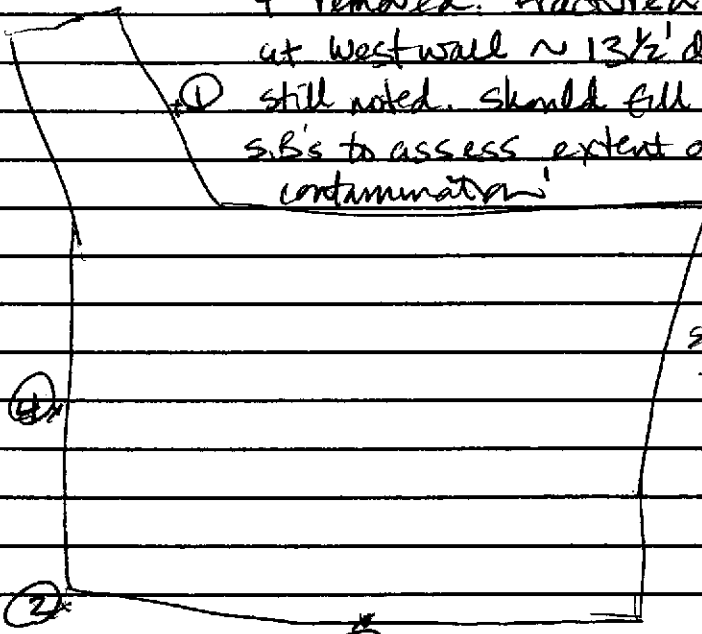 + removed. Fractured
at West wall ~ 13½' d
① still noted. should fill
S.B's to assess extent o
contamination'
s
4
②